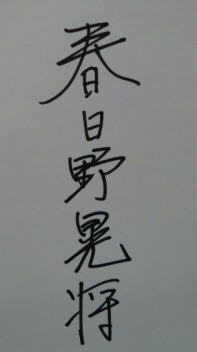 春日野晃将